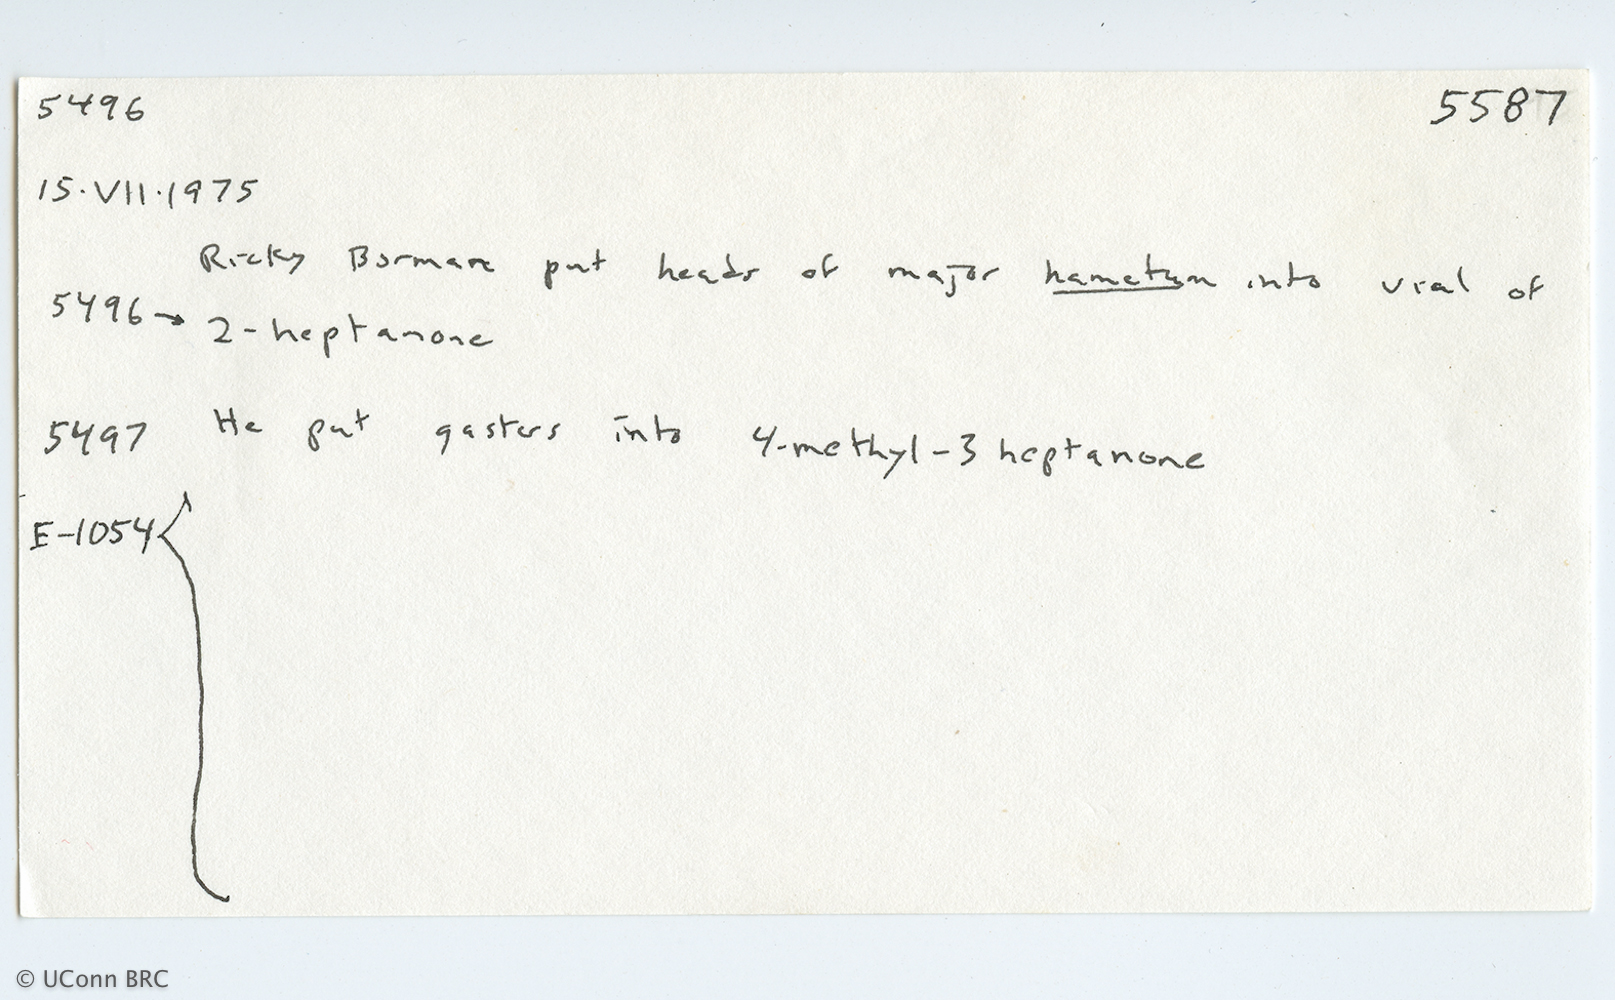 5496 5587
15.VII.1975
Ricky Bormann put heads of major hamatum into vial of
5496→ 2-heptanone
5497 He put gasters into 4-methyl-3 heptanone
E-1054
© UConn BRC